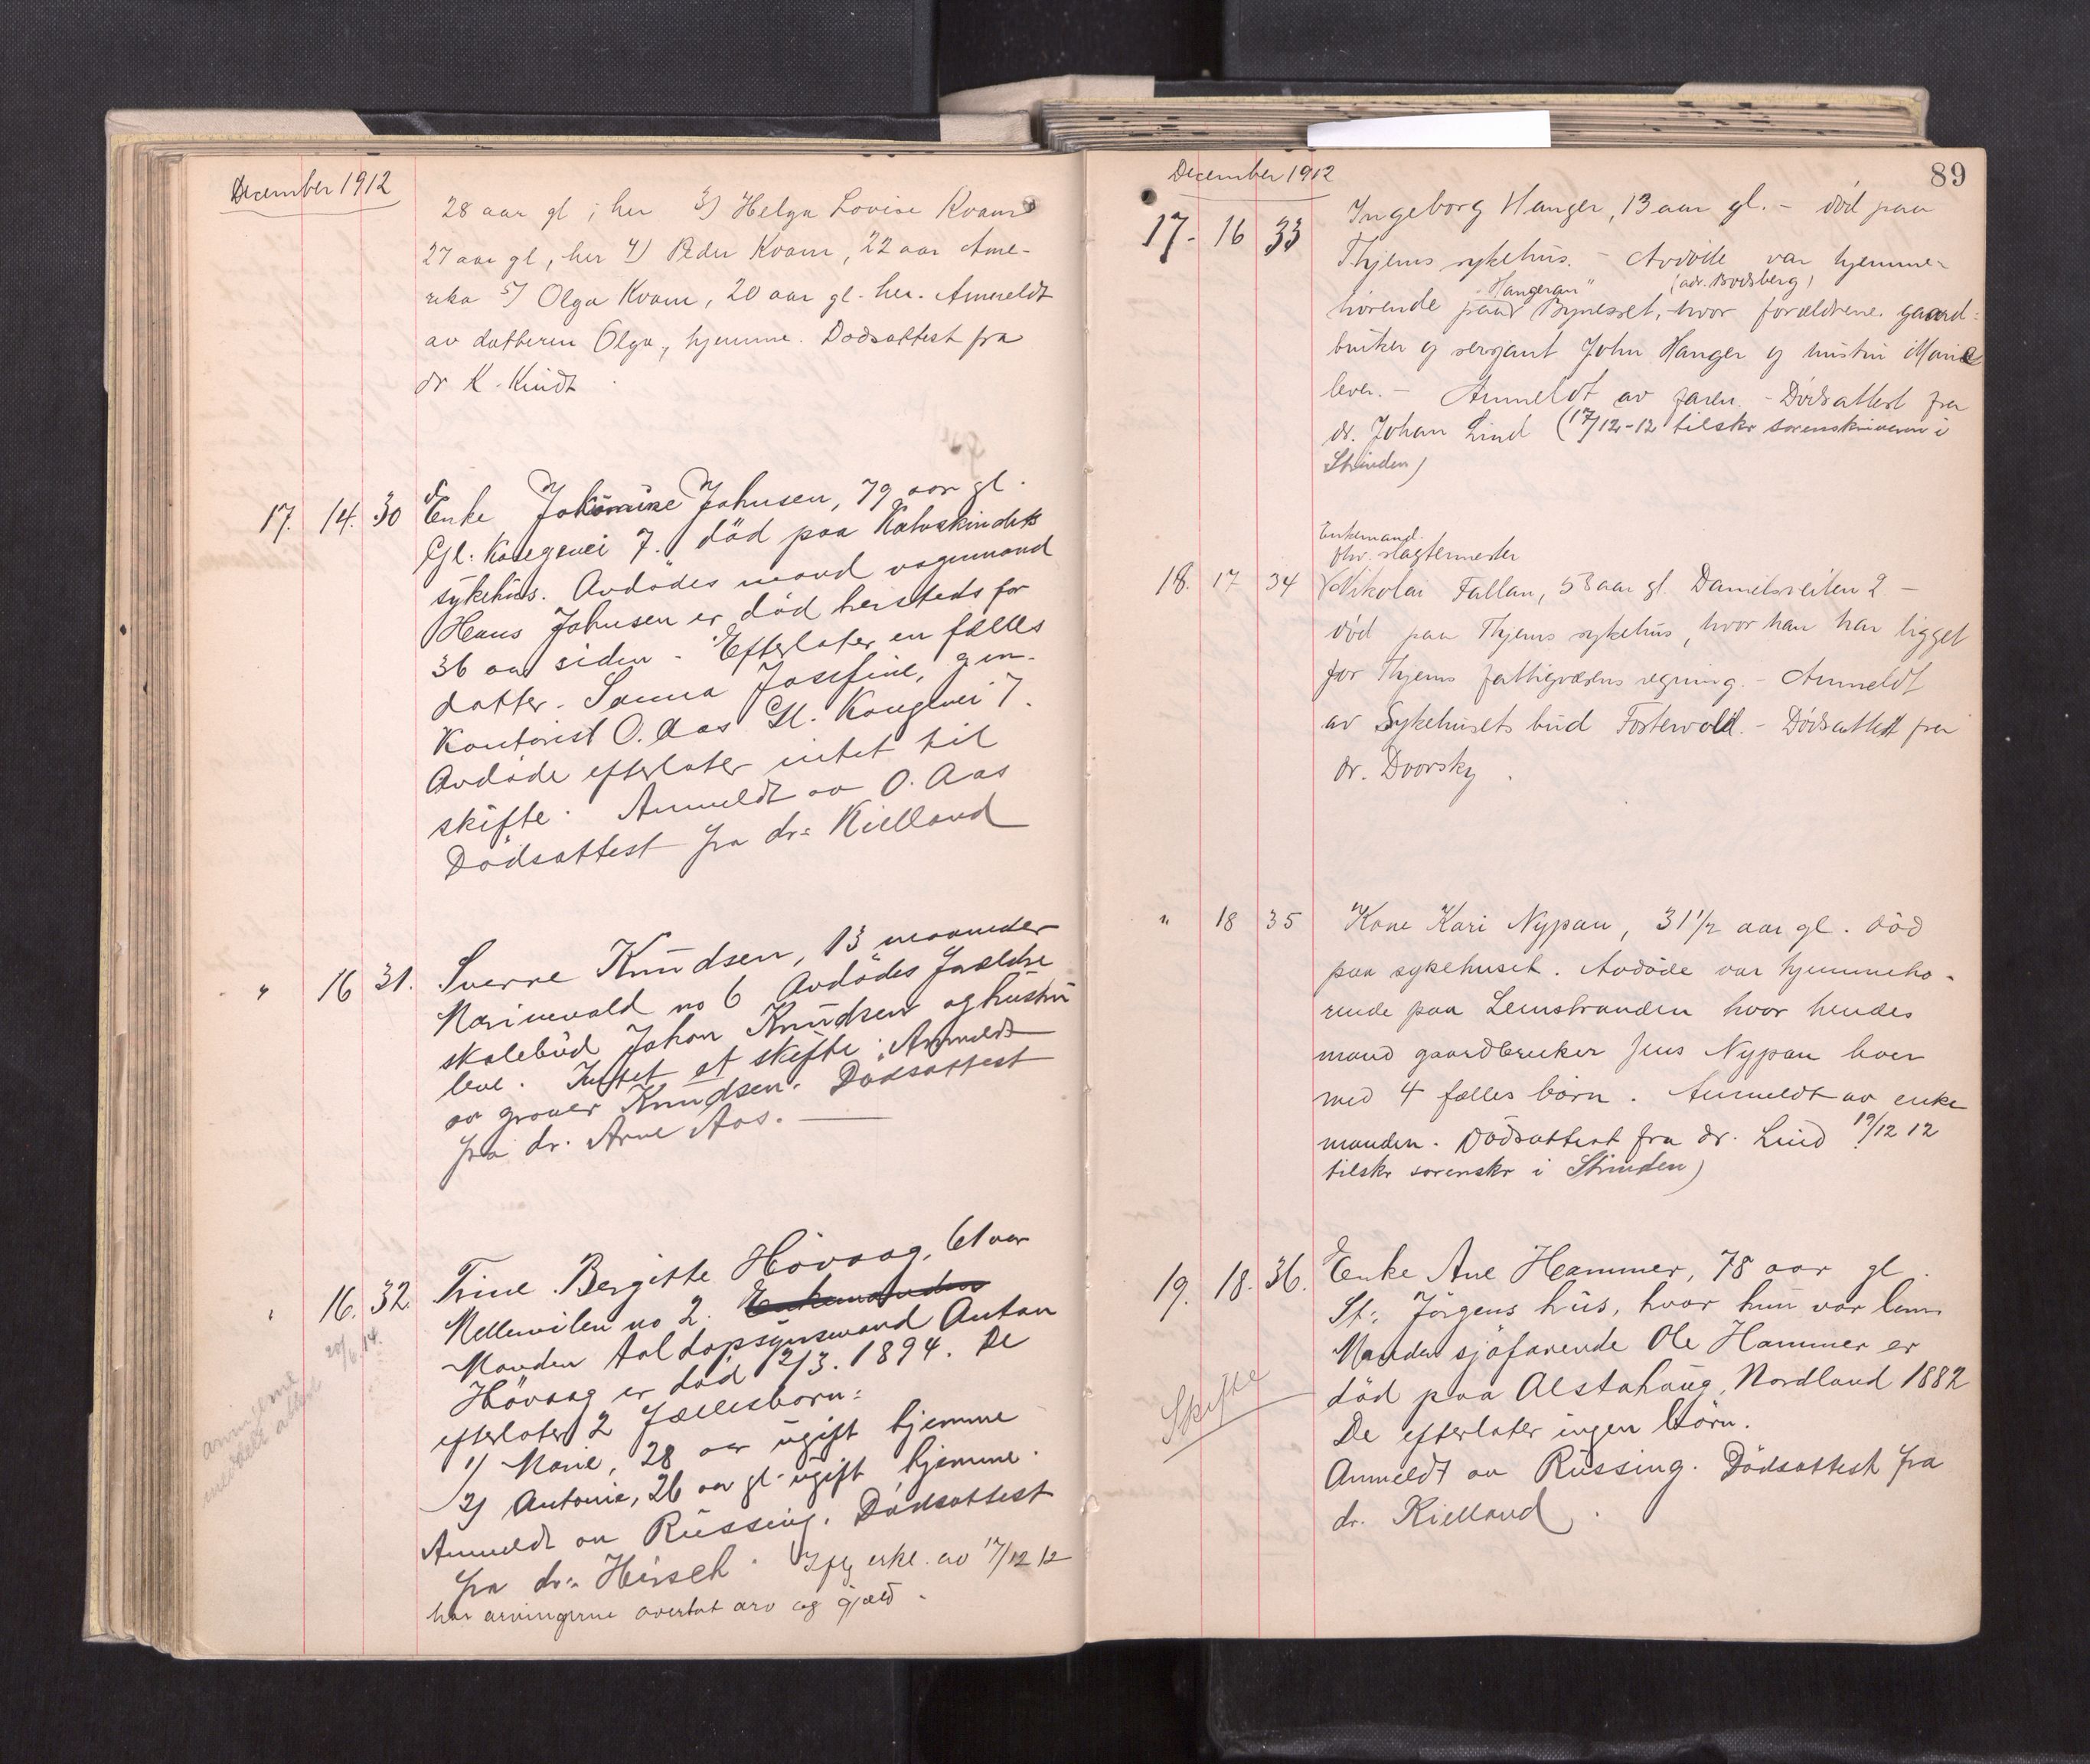 December 1912
28 aar gl; her 3) Helga Lovise Kvam
27 aar gl, her 4) Peder Kvam, 22 aar Ame-
rika 5) Olga Kvam, 20 aar gl. her. Anmeldt
av datteren Olga, hjemme. Dødsattest fra
dr K. Kindt
17. 14. 30 Enke Johnsen, 79 aar gl.
Gl. Kongevei 7. död paa Kalvskindets
sykehus. Avdödes mand vognmand
Hans Johnsen er död hersteds for
36 aar siden. Efterlater en fælles
datter. Sanna Josefine, g m.
Kontorist O. Aas Gl. Kongevei 7.
Avdöde efterlater intet til
skifte. Anmeldt av O. Aas
Dödsattest fra dr: Kielland
" 16 31. Sverre Knudsen, 13 maaneder
Marinevold no 6 Avdödes forældre
skolebud Johan Knudsen og hustru
leve. Intet at skifte. Anmeldt
av graver Knudsen. Dødsattest
fra dr. Arne Aas.
" 16. 32. Trine Bergitte Hövaag, 61 aar
Mellemilen no 2. Enkemanden
Manden toldopsynsmand Anton
Hövaag er död 12/3. 1894. De
efterlater 2 fællesbørn:
1) Marie, 28 aar ugift hjemme
2) Antonie, 26 aar gl. ugift hjemme.
Anmeldt av Russing. Dödsattest
fra dr: Hirsch. Iflg erkl. av 17/12 12
har arvingerne overtat arv og gjæld.
20/6.14.
arvingerne
meddelt attest
December 1912
89
17. 16 33 Ingeborg Hanger, 13 aar gl. - död paa
Thjems sykehus. - Avdöde var hjemme-
"Hangeran" (adr. Brodsberg)
hörende paa Bynesset, hvor forældrene gaard-
bruker og sersjant John Hanger og hustru Marie
lever. - Anmeldt av faren. - Dödsattest fra
dr. Johan Lind (17/12-12 tilskr sorenskriveren i
Strinden)
Enkemand.
fhv. slagtermester
18. 17 34 Nikolai Fallan, 53 aar gl. Danielsveiten 2 -
död paa Thjems sykehus, hvor han har ligget
for Thjems fattigvæsens regning. - Anmeldt
av Sykehusets bud Fostervold. - Dödsattest fra
dr. Dvorsky.
" 18 35 Kone Kari Nypan, 31 1/2 aar gl. död
paa sykehuset. Avdöde var hjemmehö-
rende paa Leinstranden hvor hendes
mand gaardbruker Jens Nypan lever
med 4 fælles börn. Anmeldt av enke
manden. Dödsattest fra dr. Lind 19/12 12
tilskr sorenskr i Strinden)
19. 18. 36. Enke Ane Hammer, 78 aar gl.
St: Jörgens hus, hvor hun var lem.
Manden sjöfarende Ole Hammer er
död paa Alstahaug, Nordland 1882
De efterlater ingen börn.
Anmeldt av Russing. Dödsattest fra
dr. Kielland.
Skifte